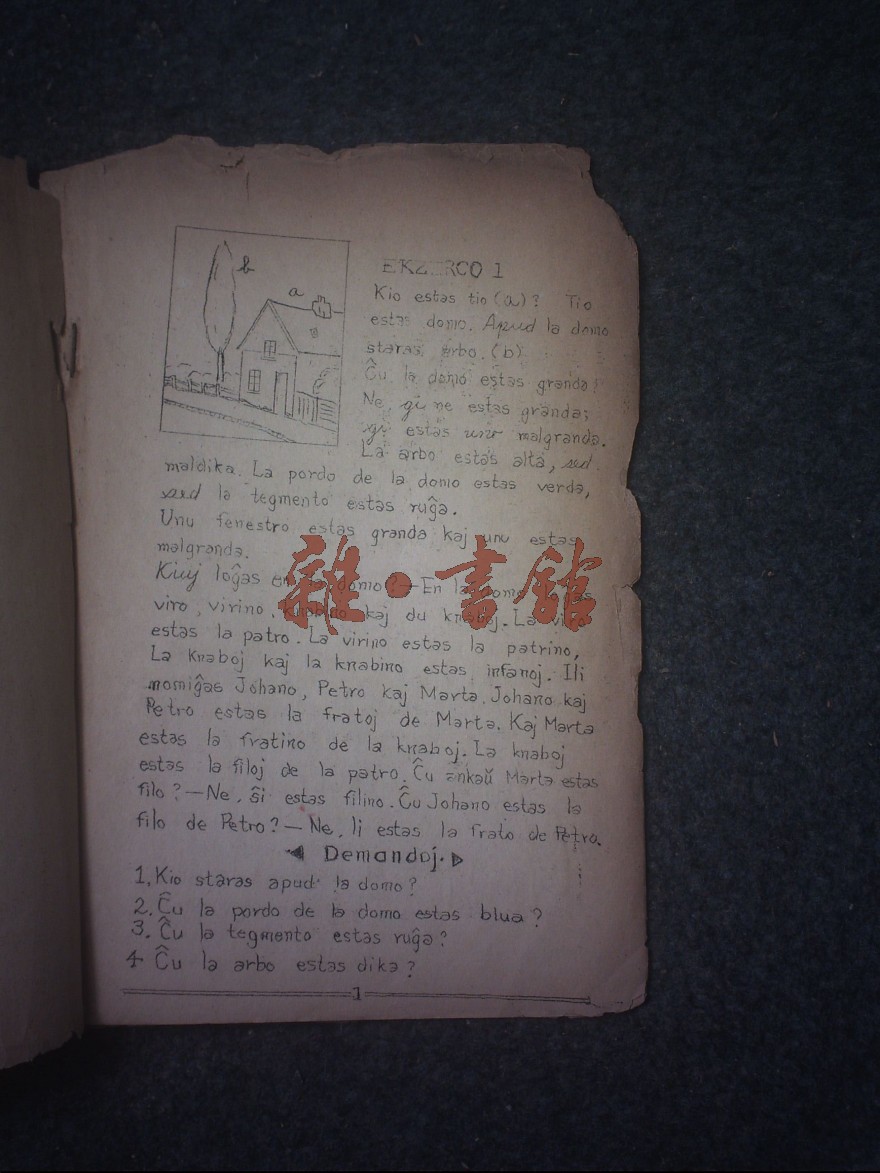 b
a
EKZERCO 1
Kio estas tio (a)? Tio
estas domo. Apud la domo
staras arbo. (b)
Ĉu la domo estas granda?
Ne, ĝi ne estas granda;
ĝi estas malgranda.
La arbo estas alta, sed
maldika. La pordo de la domo estas verda,
sed la tegmento estas ruĝa.
Unu fenestro estas granda kaj unu estas
malgranda.
Kiuj loĝas en la domo? — En la domo loĝas
viro, virino, knabino kaj du knaboj. La viro
estas la patro. La virino estas la patrino,
La knaboj kaj la knabino estas infanoj. Ili
nomiĝas Johano, Petro kaj Marta. Johano kaj
Petro estas la fratoj de Marta. Kaj Marta
estas la fratino de la knaboj. La knaboj
estas la filoj de la patro. Ĉu ankaŭ Marta estas
filo? — Ne, ŝi estas filino. Ĉu Johano estas la
filo de Petro? — Ne, li estas la frato de Petro.
Demandoj.
1. Kio staras apud la domo?
2. Ĉu la pordo de la domo estas blua?
3. Ĉu la tegmento estas ruĝa?
4 Ĉu la arbo estas dika?
1
雜·書館